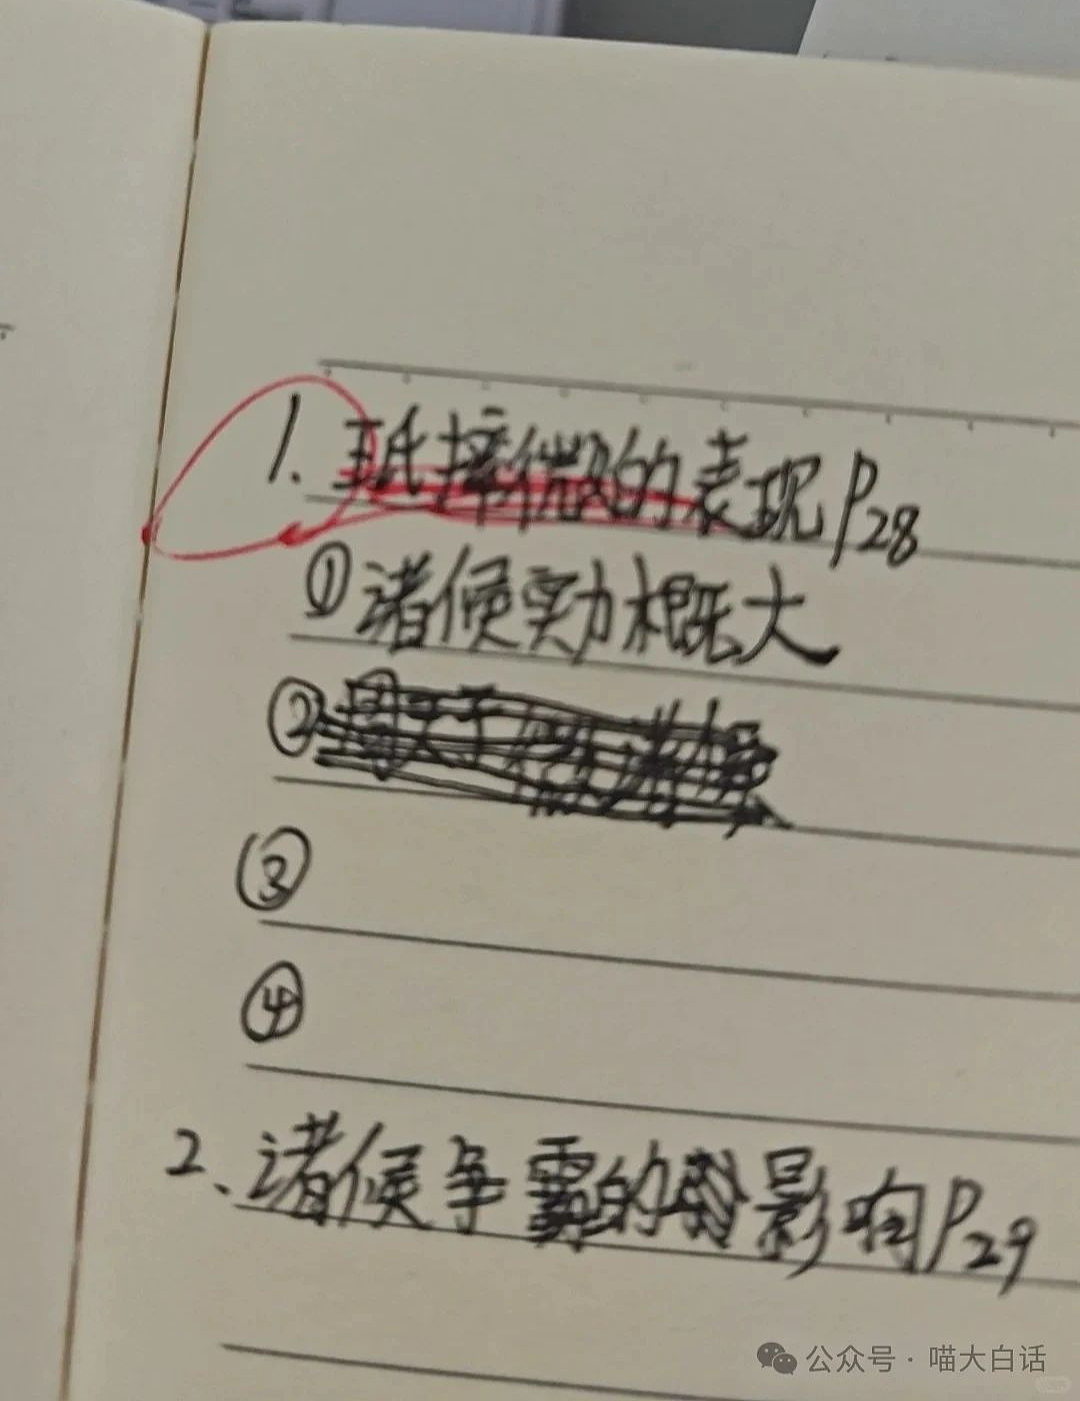 1. 微的表现P28
①诸候实力概大
②
③
④
2、诸候争霸的影响P29
公众号·喵大白话